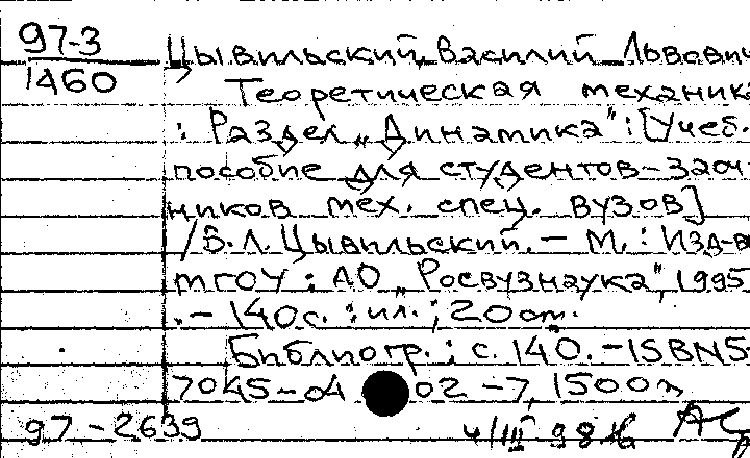 97-3
1460
Цывильский, Василий Львович
Теоретическая механика
: Раздел „Динамика" : [Учеб.
пособие для студентов-заоч
ников мех. спец. вузов]
/ В. Л. Цывильский. - М. : Изд-во
МГОУ : АО „Росвузнаука", 1995
. - 140 с. : ил. ; 20 см.
Библиогр.: с. 140. - ISBN 5-
7045-04 02-7, 1500 э
97-2639
4/III 98